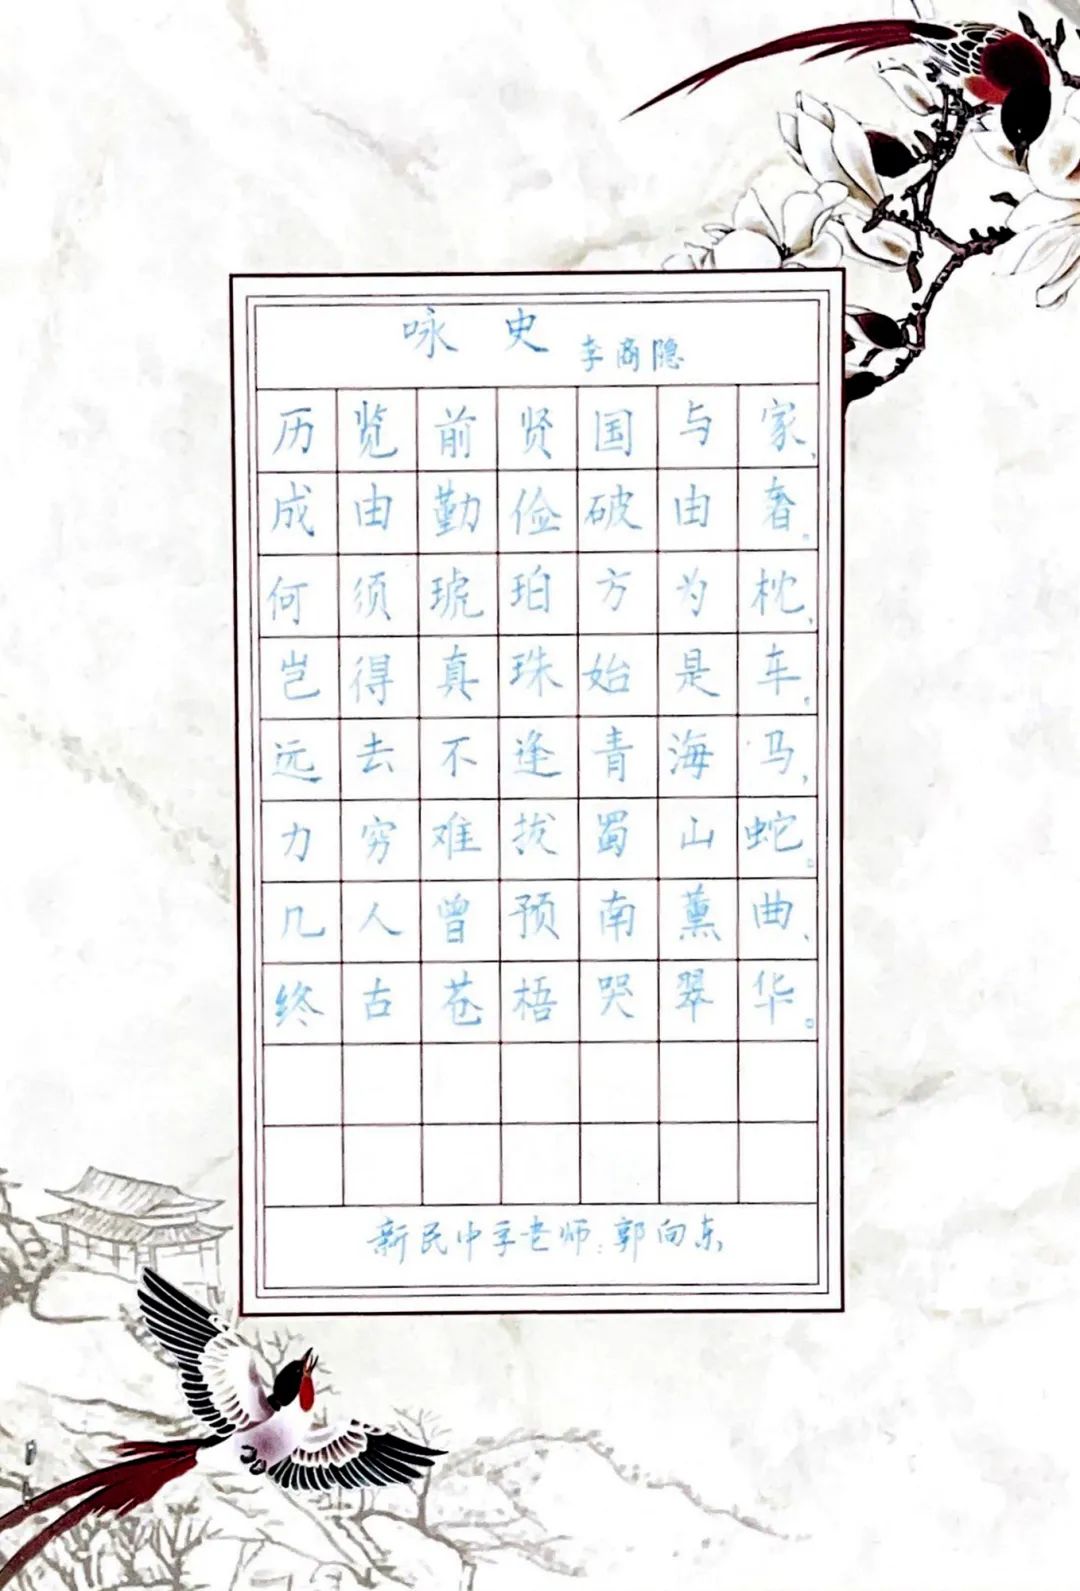 咏史 李商隐
历览前贤国与家，
成由勤俭破由奢。
何须琥珀方为枕，
岂得真珠始是车。
远去不逢青海马，
力穷难拔蜀山蛇。
几人曾预南薰曲、
终古苍梧哭翠华。
新民中学老师：郭向东